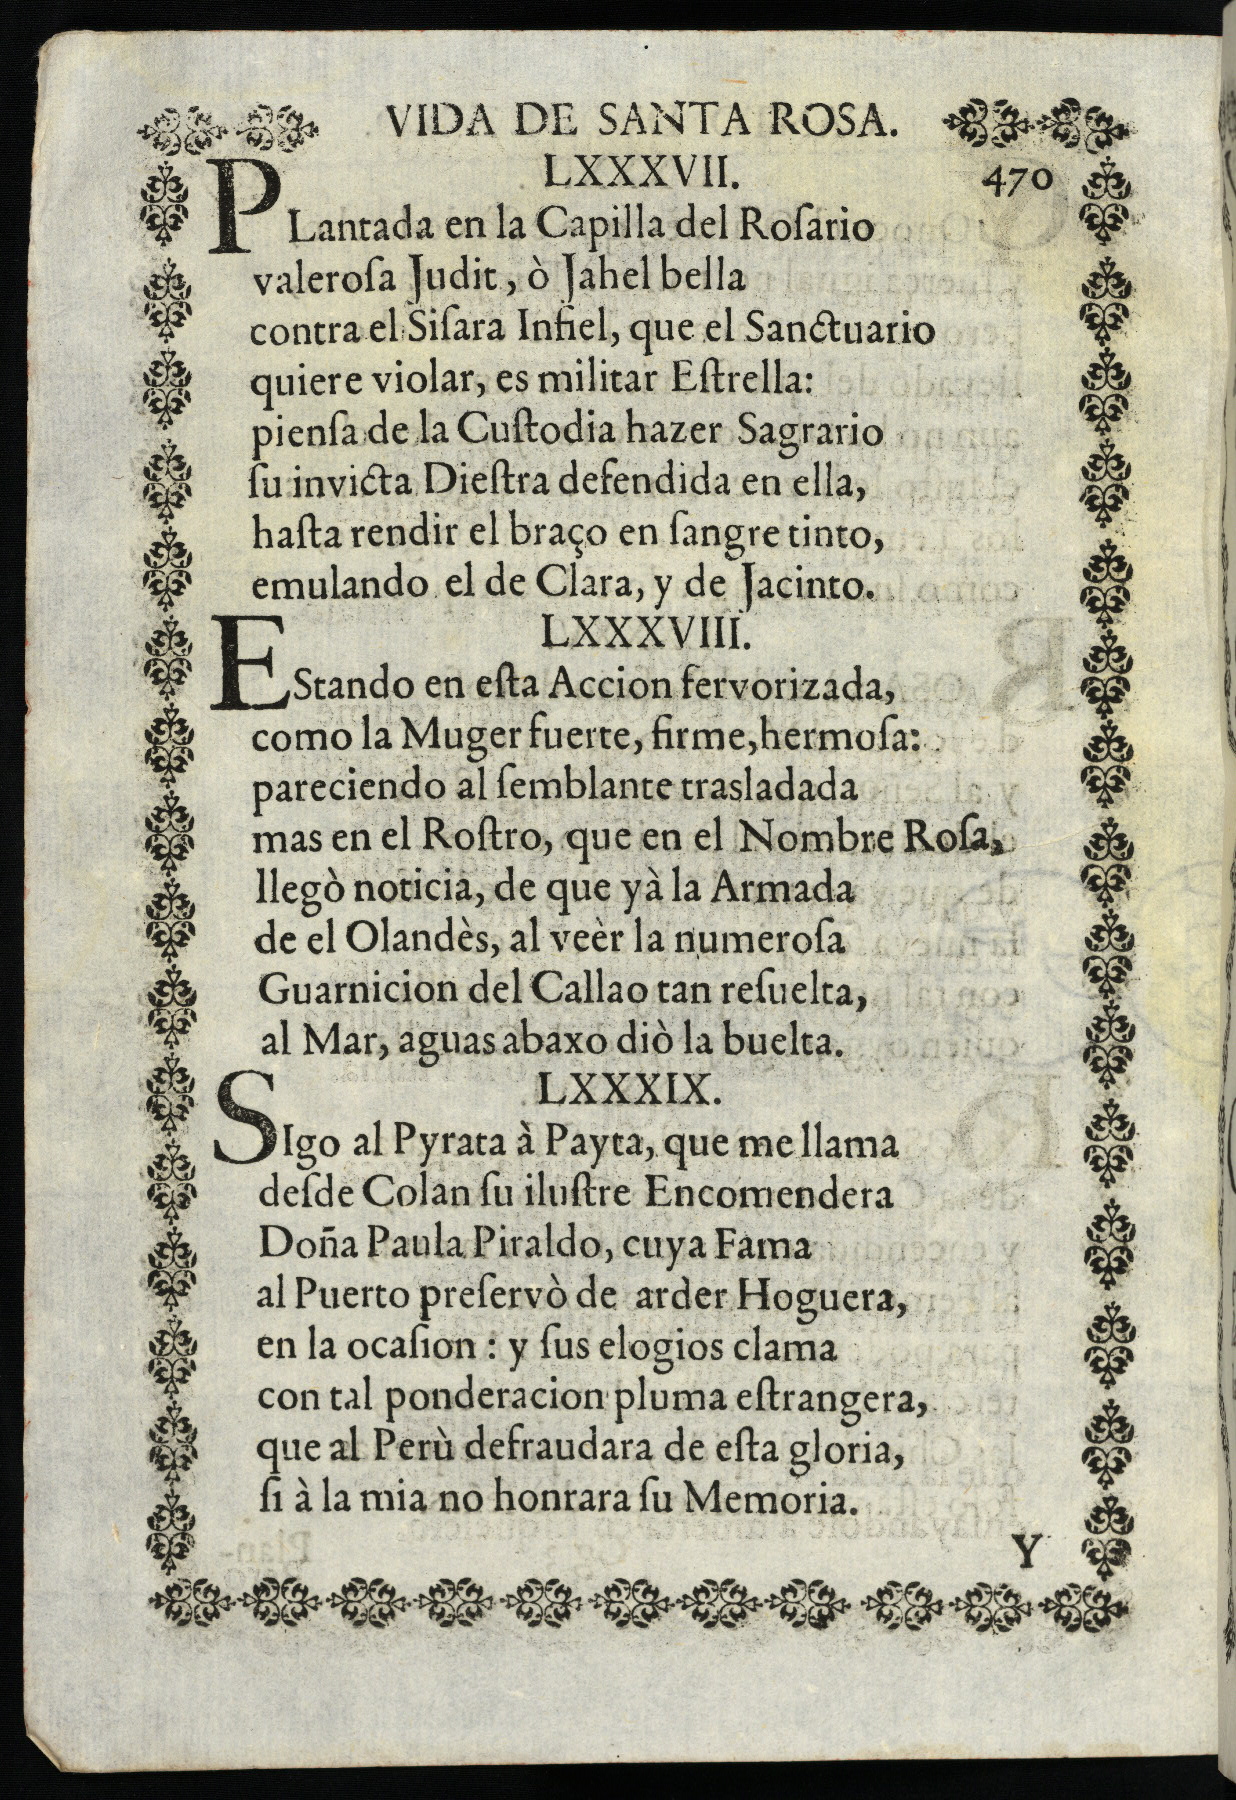 VIDA DE SANTA ROSA.
LXXXVII. 470
PLantada en la Capilla del Roſario
valeroſa Judit, ò Jahel bella
contra el Siſara Infiel, que el Sanctuario
quiere violar, es militar Eſtrella:
pienſa de la Cuſtodia hazer Sagrario
ſu invicta Dieſtra defendida en ella,
haſta rendir el braço en ſangre tinto,
emulando el de Clara, y de Jacinto.
LXXXVIII.
EStando en eſta Accion fervorizada,
como la Muger fuerte, firme, hermoſa:
pareciendo al ſemblante trasladada
mas en el Roſtro, que en el Nombre Roſa,
llegò noticia, de que yà la Armada
de el Olandès, al veèr la numeroſa
Guarnicion del Callao tan reſuelta,
al Mar, aguas abaxo diò la buelta.
LXXXIX.
SIgo al Pyrata à Payta, que me llama
deſde Colan ſu iluſtre Encomendera
Doña Paula Piraldo, cuya Fama
al Puerto preſervò de arder Hoguera,
en la ocaſion: y ſus elogios clama
con tal ponderacion pluma eſtrangera,
que al Perù defraudara de eſta gloria,
ſi à la mia no honrara ſu Memoria.
Y